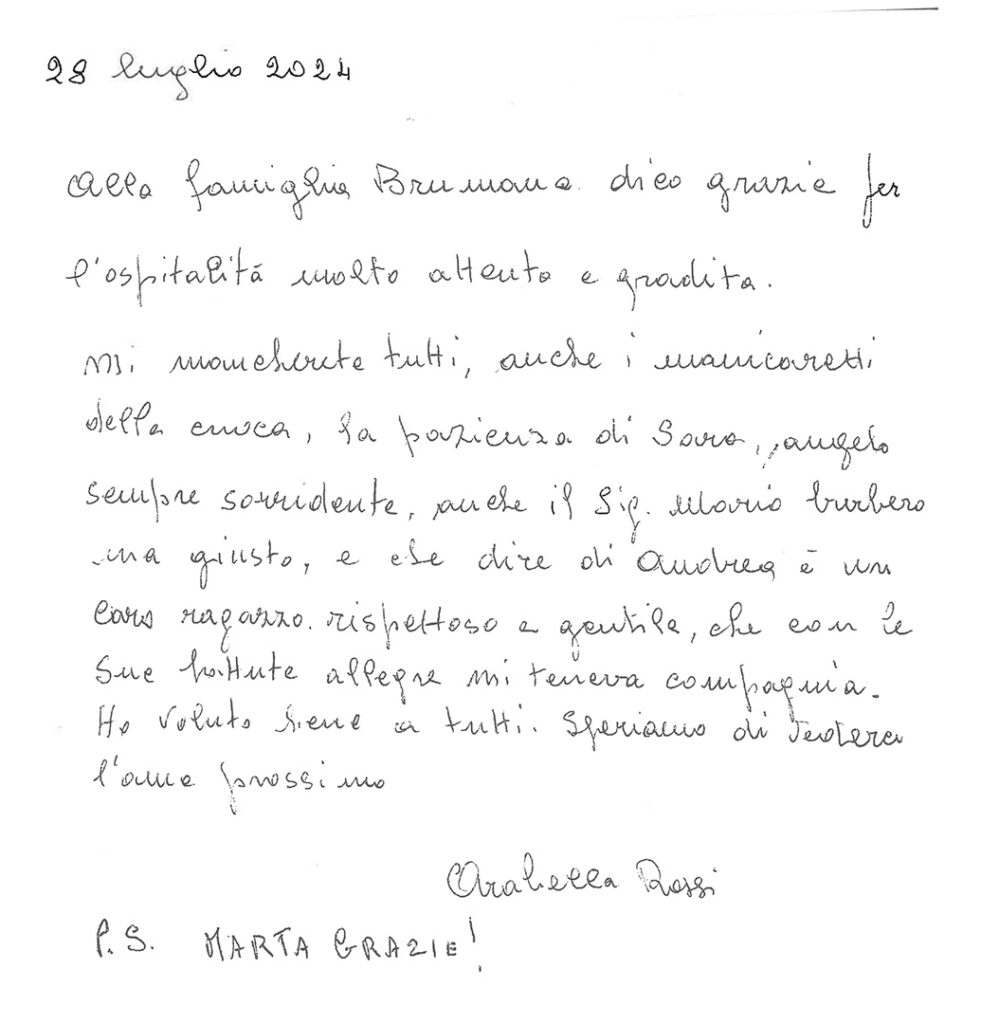 28 luglio 2024
Alla famiglia Brumana dico grazie per
l'ospitalità molto attento e gradita.
Mi mancherete tutti, anche i manicaretti
della cuoca, la pazienza di Sara, angelo
sempre sorridente, anche il Sig. Mario burbero
ma giusto, e che dire di Andrea è un
caro ragazzo. rispettoso e gentile, che con le
sue battute allegre mi teneva compagnia.
Ho voluto bene a tutti. Speriamo di
l'anno prossimo
Arabella Rossi
P.S. MARTA GRAZIE!